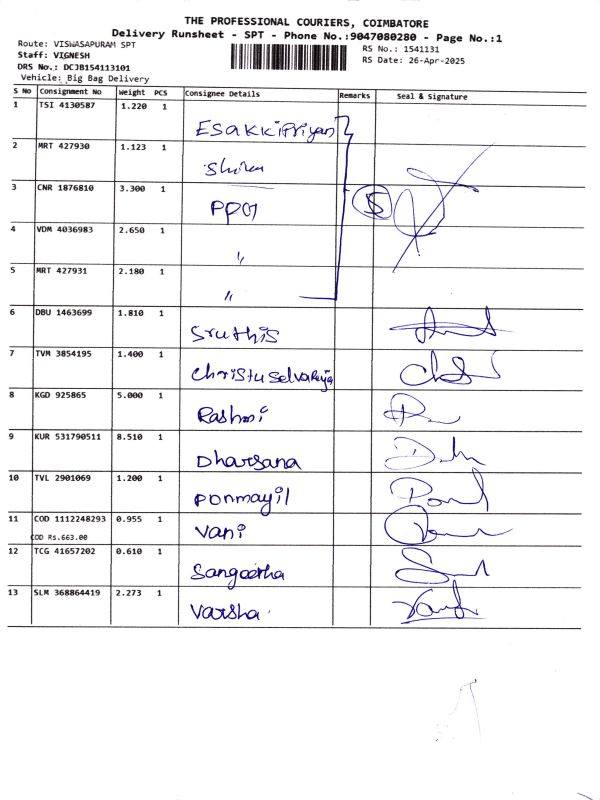 THE PROFESSIONAL COURIERS, COIMBATORE
Delivery Runsheet - SPT - Phone No.:9047080280 - Page No.:1
Route: VISWASAPURAM SPT
Staff: VIGNESH
DRS No.: DCJB154113101
Vehicle: Big Bag Delivery
RS No.: 1541131
RS Date: 26-Apr-2025
S No Consignment No Weight PCS Consignee Details Remarks Seal & Signature
1 TSI 4130587 1.220 1 Esakkipriyan
2 MRT 427930 1.123 1
3 CNR 1876810 3.300 1
4 VDM 4036983 2.650 1 "
5 MRT 427931 2.180 1 "
5
6 DBU 1463699 1.810 1 Sruthis
7 TVM 3854195 1.400 1
8 KGD 925865 5.000 1 Rashmi
9 KUR 531790511 8.510 1 Dharsana
10 TVL 2901069 1.200 1 Ponmayil
11 COD 1112248293 0.955 1 Vani
COD Rs.663.00
12 TCG 41657202 0.610 1 Sangeetha
13 SLM 368864419 2.273 1 Varsha